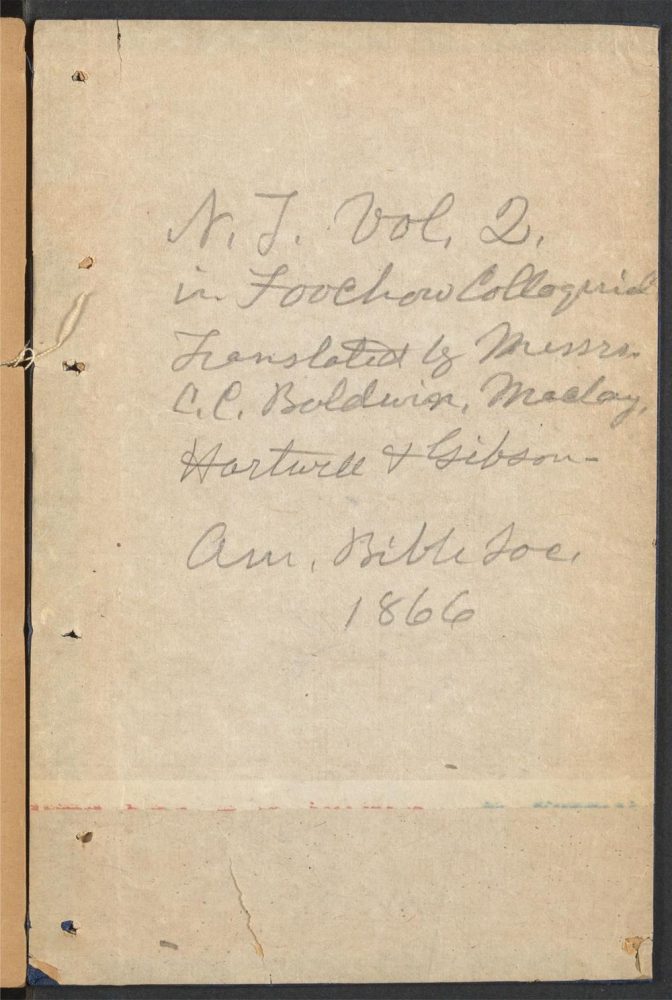 N. T. Vol. 2.
in Foochow Colloquial
Translated by Messrs.
C. C. Baldwin, Maclay,
Hartwell & Gibson -
Am. Bible Soc.
1866